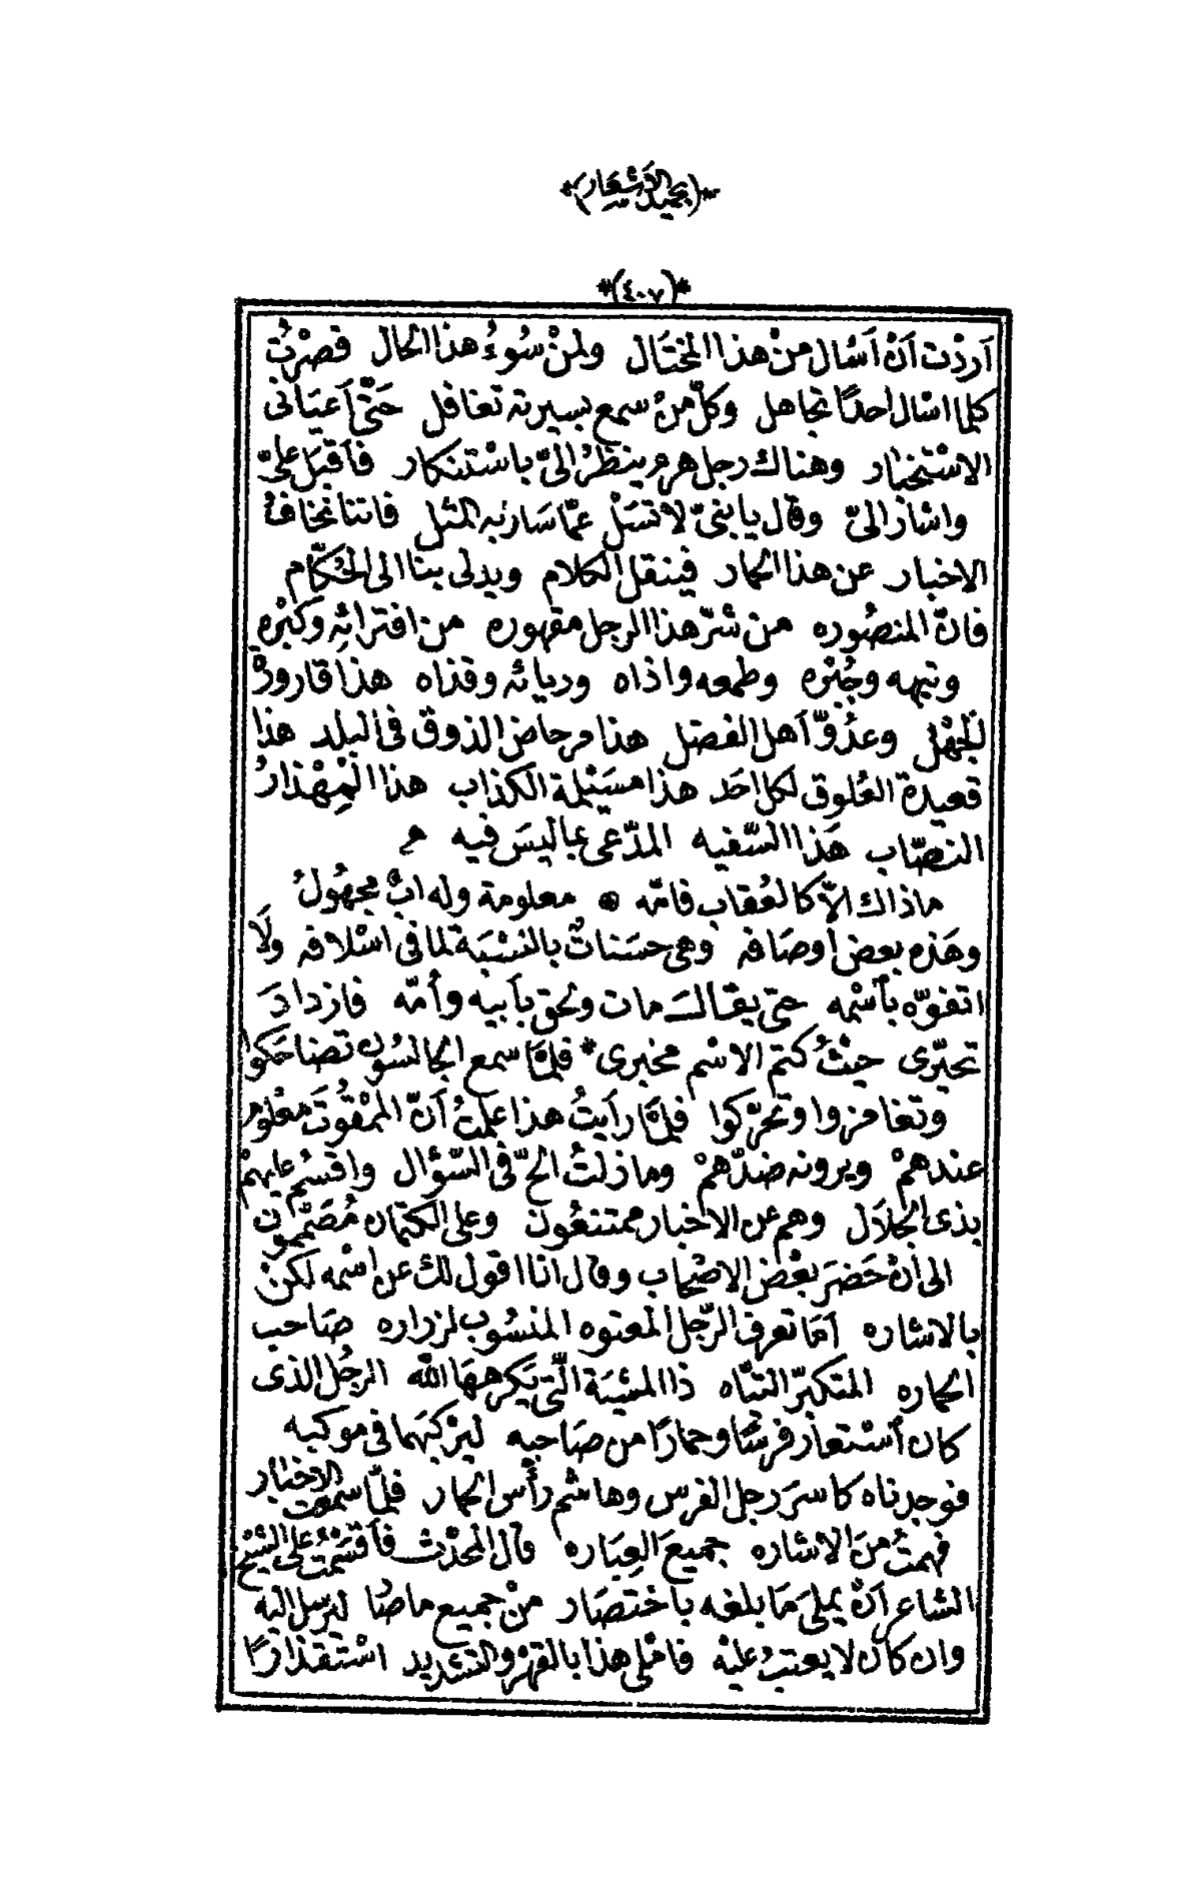 *(بجميل الأشعار)*
*(٤٠٧)*
آردْت اَنْ اَسْال منْ هذا المختَال ولمنْ سُوءُ هذا الحال فصرْتُ
كلما اسْال احدًا تجاهل وكلّ منْ سمع بسيرته تغافل حَتّى اَعيَانى
الاسْتخبار وهناك رجل هرم ينظرُ الىّ باسْتنكار فاَقبَل علىّ
واشار الىّ وقال يا بنىّ لا تسَلْ عمّا سَار به المثل فاننا نخافُ
الاخبار عن هذا الحمار فينقل الكلام ويدلى بنا الى الحُكّام
فانّ المنصُوره من شرّ هذا الرجل مقهوره من افترائهِ وكبْرهِ
وتيهه وجُبْره وطمعه واذاه وريائه وقذاه هذا قارورةْ
الجَهْل وعدُوّ اَهل الفضل هذا مرحاض الذوق فى البلد هذا
قعيدة العُلوق لكل احَد هذا مسَيْلمة الكذاب هذا الْمِهْذارُ
النصّاب هَذا السّفيه المدّعى بما ليسَ فيه م
ماذاك الاّ كالعُقاب فامّه * معلومة وله ابٌ مجهُولُ
وهَذه بعض أوصَافه وهى حسَناتٌ بالنسْبَة لما فى اسْلافه ولَا
اتفوّه بأسْمه حتى يقال مات ولحق بأبيه وأمّه فازدادَ
تحيّرى حيْثُ كتم الاسْم مخبرى * فلمّا سمع الجالسُون تضاحَكوا
وتغامزوا وتحرّكوا فلمّا رأيتُ هذا علمتُ اَنّ الممْقُوتَ معْلوم
عندهمْ ويرونه ضدّهمْ وما زلتُ الحّ فى السّؤال واقسُم عليهمْ
بذى الجلَال وهم عن الاخبار ممتنعُون وعلى الكتمان مُصَمّمون
الى أنْ حَضرَ بعْض الاصْحاب وقال انا اقول لك عن اسْمه لكنْ
بالاشاره اَمَا تعرف الرّجل المعتوه المنسُوب لزراره صَاحب
الحماره المتكبّر التيّاه ذا المشيَة الّتى يَكرههَا الله الرجُل الذى
كان أسْتعار فرسًا وحمارًا من صَاحبه ليرْكبَهما فى موكبه
فوجدناه كاسرَ رجل الفرس وهاشم رأس الحمار فلمّا سمعت الاخبار
فهمتُ منَ الاشاره جميعَ العبَاره قال المحَدّث فأقسَمْتُ على الشيْخ
الشاعر اَنْ يملىَ مَا بلغه باخْتصَار منْ جميع ما صَار لنرسل اليه
وان كان لا يعتبُ عليْه فاملى هذا بالقهْر والتشديد اسْتقذارًا